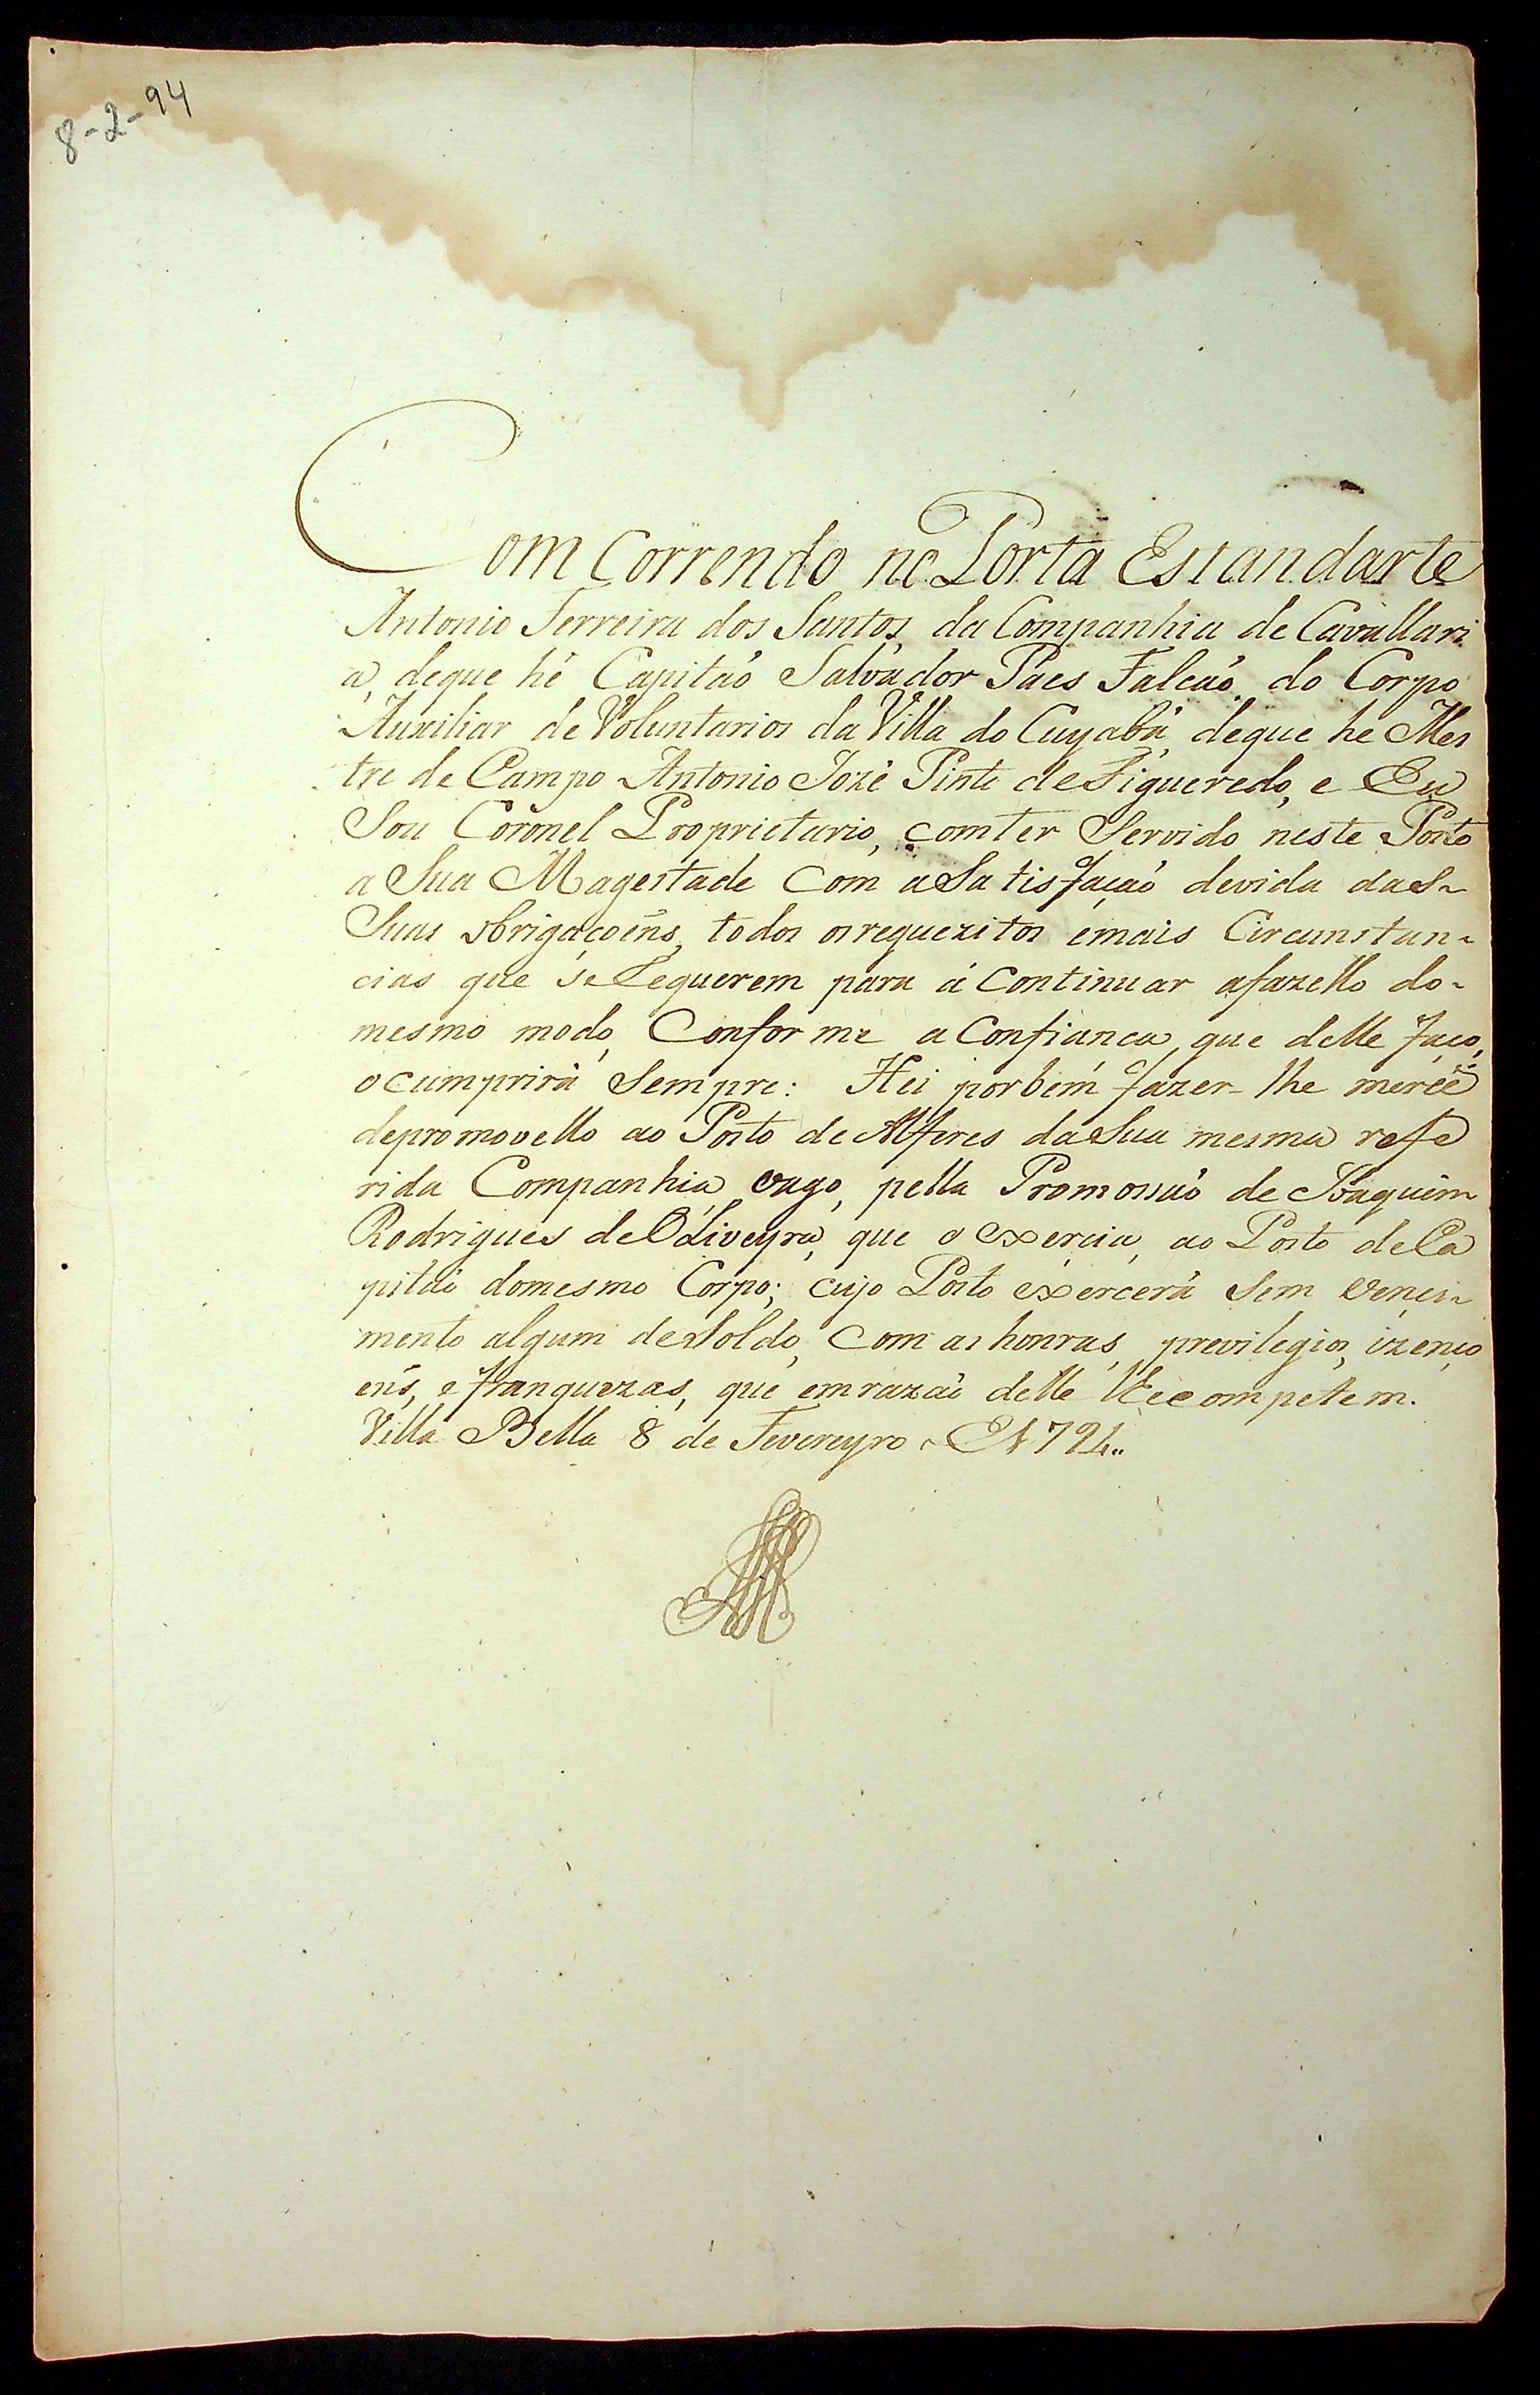 8-2-94
Com Correndo no Porta Estandarte
Antonio Ferreira dos Santos, da Companhia de Cavallari
a, deque hé Capitaó Salvador Paes Falcaó, do Corpo
Auxiliar de Voluntarios da Villa do Cuyabá, deque he Mes
tre de Campo Antonio Jozé Pinto de Figueredo, e Eu
Sou Coronel Proprietario, comter Servido neste Posto
a Sua Magestade Com aSatisfaçaó devida das~
Suas obrigaçoẽns, todos osrequezitos emais Circunstan~
cias que se Requerem para á Continuar afazello do~
mesmo modo, Conforme a Confianca, que delle faço,
ocumprirá Sempre: Hei porbem fazer-lhe mercê
depromovello ao Posto de Alferes daSua mesma refe
rida Companhia vago, pella Promossaó de Joaquim
Rodrigues deOLiveyra, que o exercia, ao Posto deCa
pitaó domesmo Corpo; cujo Posto exercerá Sem venci~
mento algum deSoldo, Com as honras, previlegios, izenço
ens, e franquezas, que emrazaó delle lhecompetem.
Villa Bella 8 de Fevereyro 1794..